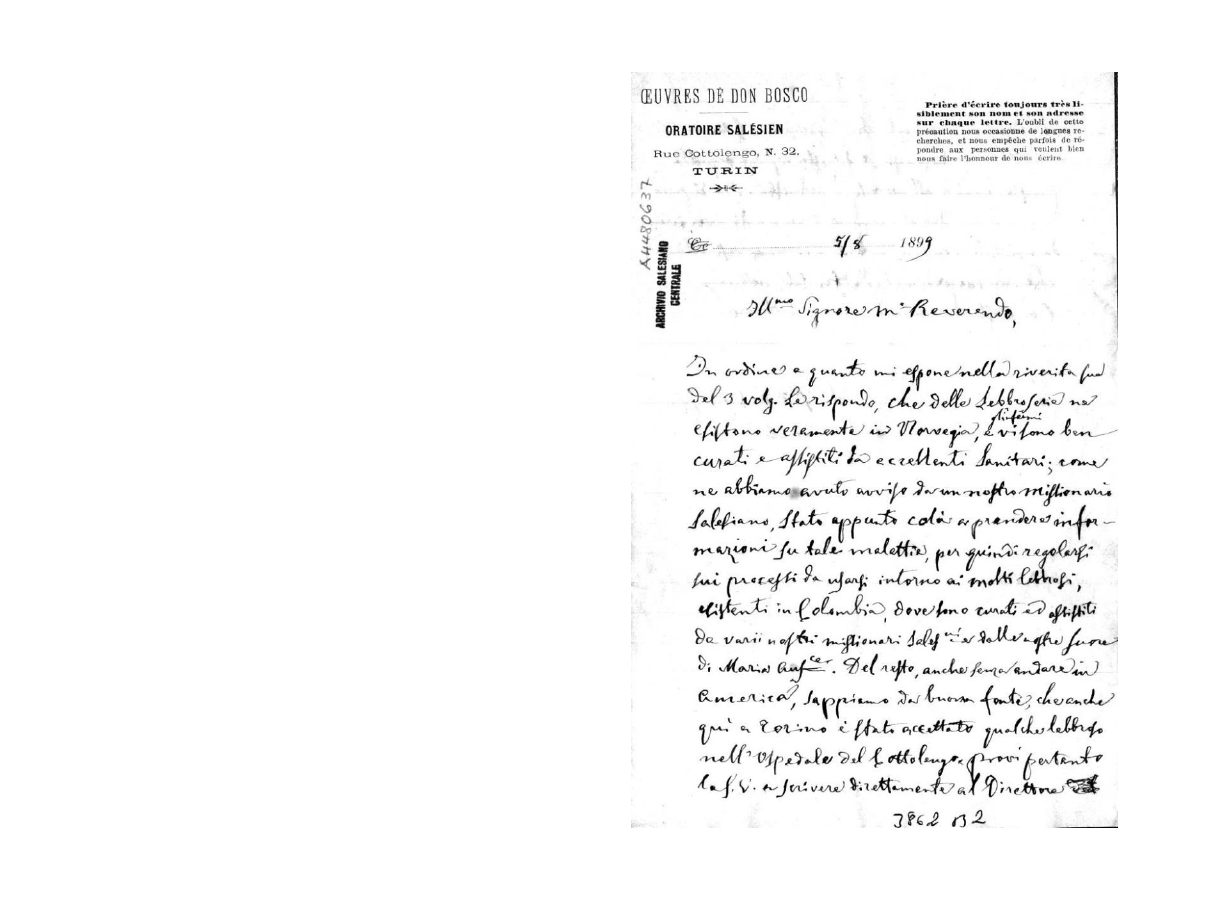 ŒUVRES DE DON BOSCO
ORATOIRE SALÉSIEN
Rue Cottolengo, N. 32.
TURIN
Prière d'écrire toujours très li-
siblement son nom et son adresse
sur chaque lettre. L'oubli de cette
précaution nous occasionne de longues re-
cherches, et nous empêche parfois de ré-
pondre aux personnes qui veulent bien
nous faire l'honneur de nous écrire.
A4480637
ARCHIVIO SALESIANO
CENTRALE
Ce 5/8 1899
Ill.mo Signore M.o Reverendo,
In ordine a quanto mi espone nella riverita sua
del 3 volg. Le rispondo, che delle Lebbroserie ne
esistono veramente in Norvegia, e gl'infermi vi sono ben
curati e assistiti da eccellenti Sanitari; come
ne abbiamo avuto avviso da un nostro missionario
Salesiano, stato appunto colà a prendere infor-
mazioni su tale malattia, per quindi regolarsi
sui processi da usarsi intorno ai molti lebbrosi,
esistenti in Colombia, dove sono curati ed assistiti
da varii nostri missionari Sales.ni e dalle nostre suore
di Maria Aus.ce. Del resto, anche senza andare in
America, sappiamo da buona fonte, che anche
qui a Torino è stato accettato qualche lebbroso
nell'Ospedale del Cottolengo, provi pertanto
la S. V. a scrivere direttamente al Direttore
3862 B2